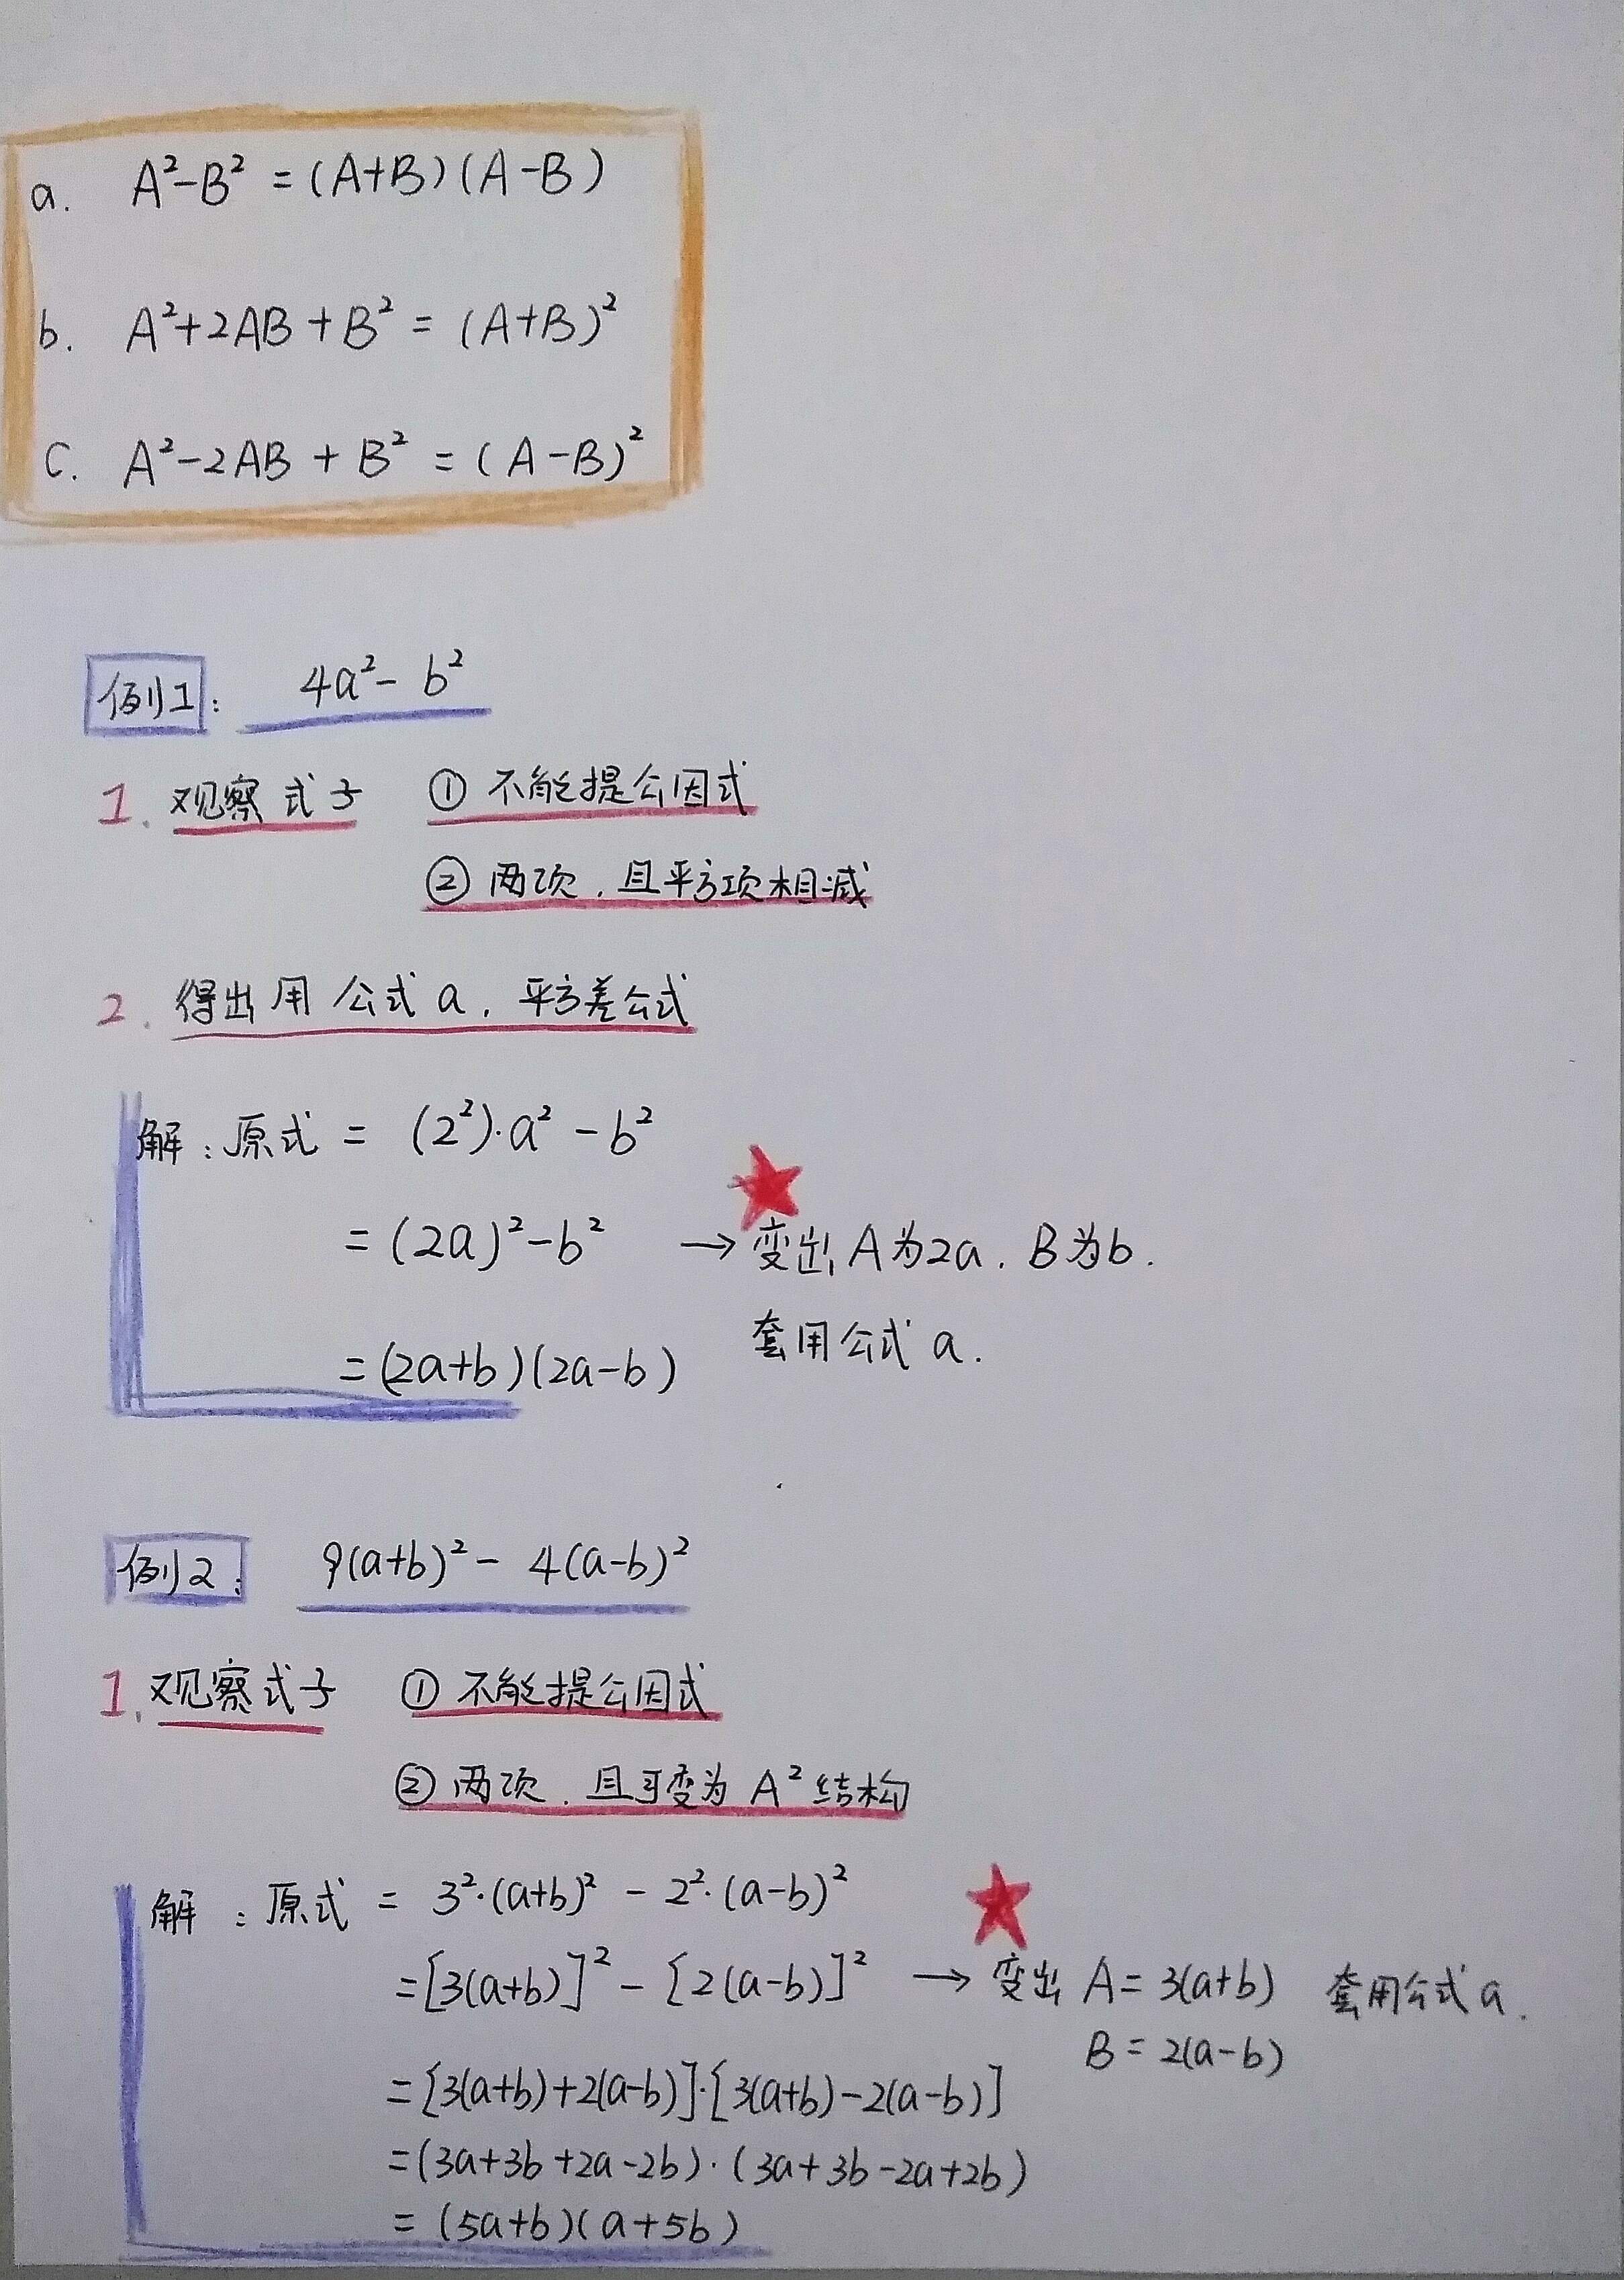 a. A²-B² = (A+B)(A-B)
b. A²+2AB+B² = (A+B)²
C. A²-2AB+B² = (A-B)²
例1: 4a²-b²
1. 观察式子 ① 不能提公因式
② 两项,且平方项相减
2. 得出用公式a,平方差公式
解:原式 = (2²)·a²-b²
= (2a)²-b² → ★变出A为2a,B为b.
套用公式a.
= (2a+b)(2a-b)
例2: 9(a+b)²- 4(a-b)²
1. 观察式子 ① 不能提公因式
② 两项,且可变为A²结构
解:原式 = 3²·(a+b)² - 2²·(a-b)²
= [3(a+b)]² - [2(a-b)]² → ★变出 A = 3(a+b) 套用公式a.
B = 2(a-b)
= [3(a+b)+2(a-b)]·[3(a+b)-2(a-b)]
= (3a+3b+2a-2b)·(3a+3b-2a+2b)
= (5a+b)(a+5b)